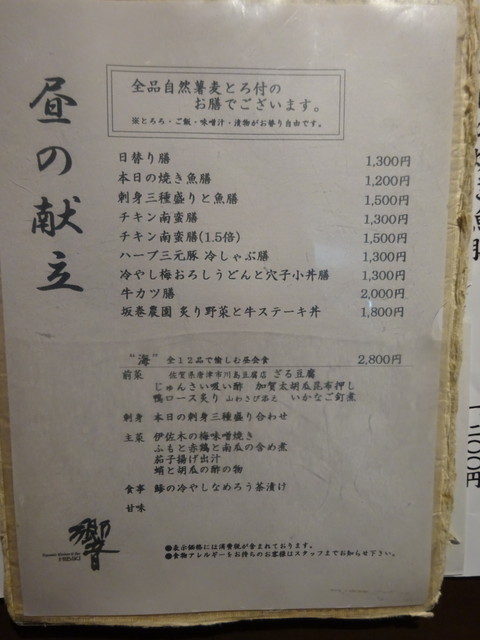 昼の献立
全品自然薯麦とろ付の
お膳でございます。
※とろろ・ご飯・味噌汁・漬物がお替り自由です。
日替り膳 1,300円
本日の焼き魚膳 1,200円
刺身三種盛りと魚膳 1,500円
チキン南蛮膳 1,300円
チキン南蛮膳(1.5倍) 1,500円
ハーブ三元豚 冷しゃぶ膳 1,300円
冷やし梅おろしうどんと穴子小丼膳 1,300円
牛カツ膳 2,000円
坂巻農園 炙り野菜と牛ステーキ丼 1,800円
“海” 全12品で愉しむ昼会食 2,800円
前菜 佐賀県唐津市川島豆腐店 ざる豆腐
じゅんさい吸い酢 加賀太胡瓜昆布押し
鴨ロース炙り 山わさび添え いかなご釘煮
刺身 本日の刺身三種盛り合わせ
主菜 伊佐木の梅味噌焼き
ふもと赤鶏と南瓜の含め煮
茄子揚げ出汁
蛸と胡瓜の酢の物
食事 鯵の冷やしなめろう茶漬け
甘味
響
HIBIKI
●表示価格には消費税が含まれております。
●食物アレルギーをお持ちのお客様はスタッフまでお知らせ下さい。